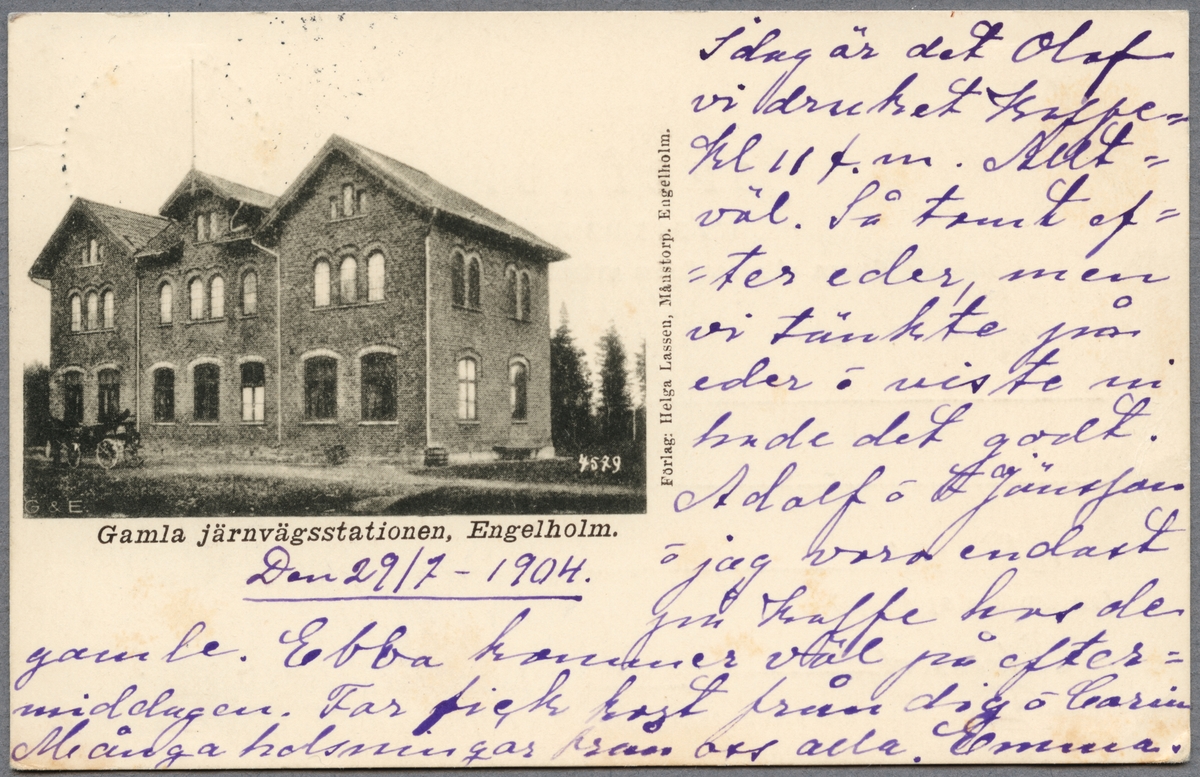 Idag är det Olof
vi druket Kaffe=
Kl 11 f.m. Allt=
väl. Så tomt ef=
=ter eder, men
vi tänkte på
eder ō viste ni
hade det godt.
Adolf ō Jönsson
ō jag voro endast
på Kaffe hos de
gamle. Ebba kommer väl på efter=
middagen. Far fick kort från dig ō Carin
Många helsningar från oss alla. Emma.
Förlag: Helga Lassen, Månstorp. Engelholm.
4579
G & E.
Gamla järnvägsstationen, Engelholm.
Den 29/7 - 1904.